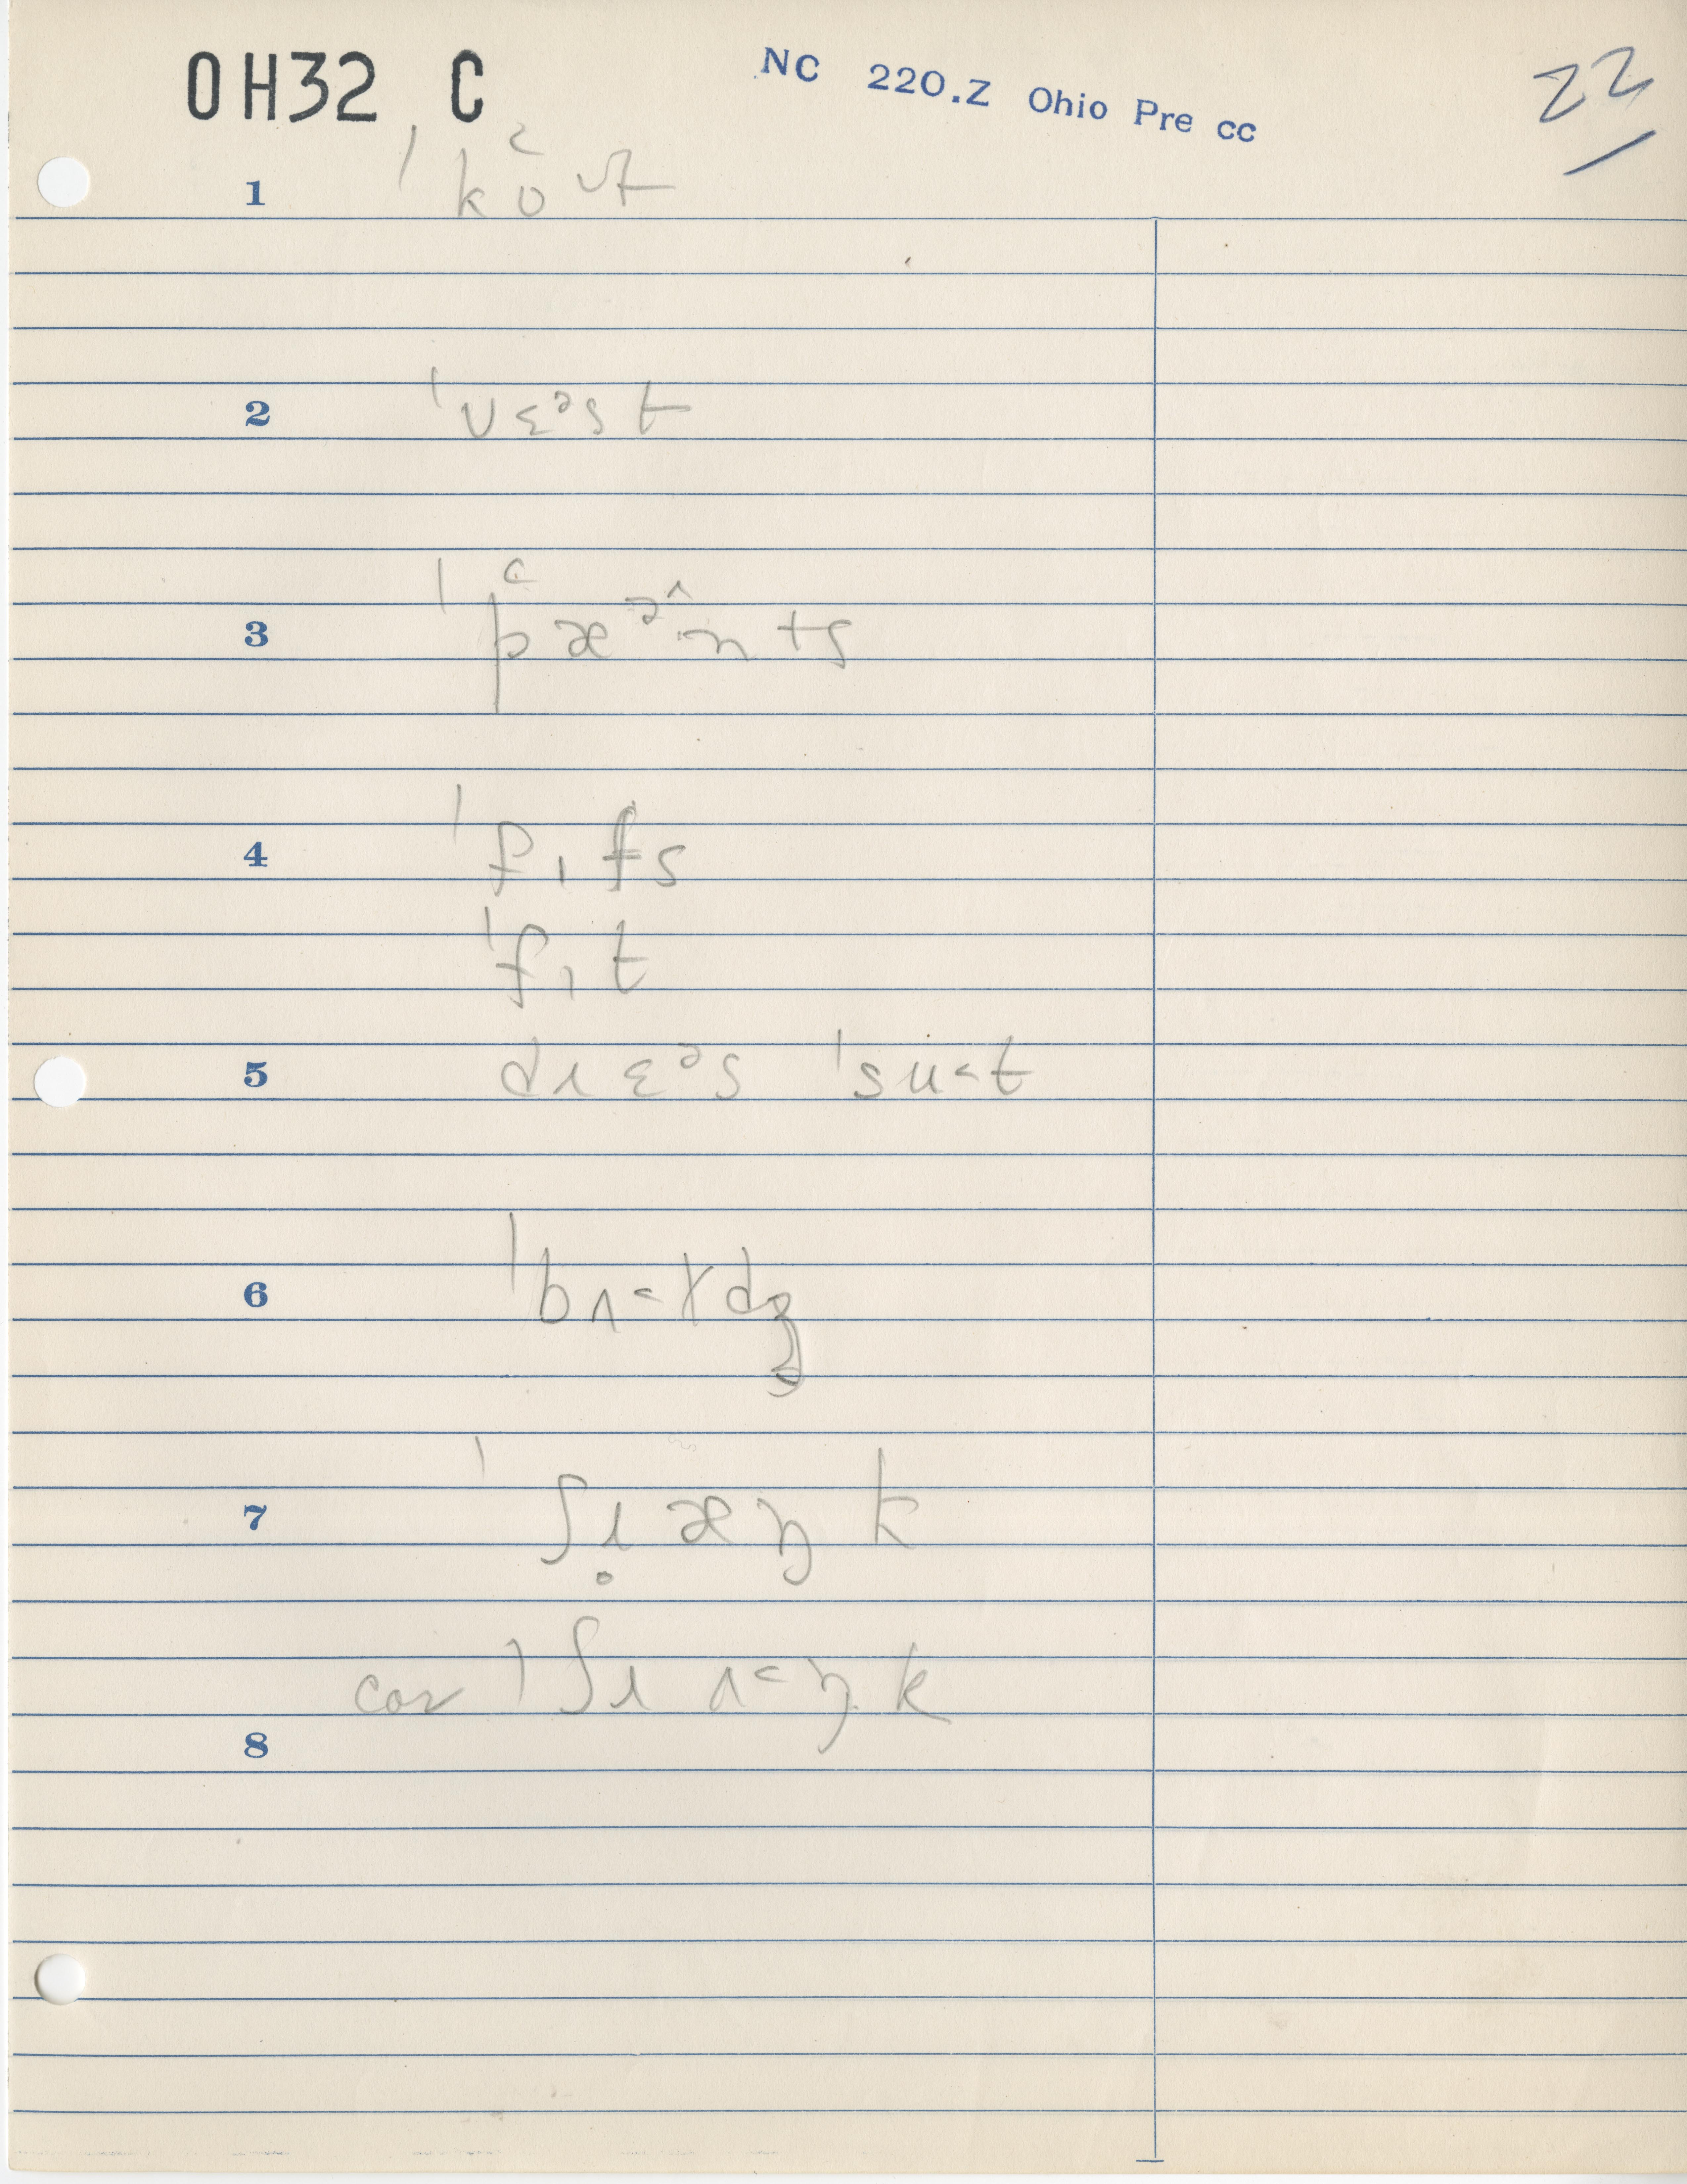 OH32 C NC 220.Z Ohio Pre cc 22
1 ˈko˂ʊt
2 ˈvɛᵊst
3 ˈp˂æᵊ^nts
4 ˈfɪts
ˈfɪt
5 drɛᵊs ˈsʉ˂t
6 ˈbʌ˂ɤdʒ
7 ˈʃɪ̥æŋk
cor ˈʃɪʌ˂ŋk
8